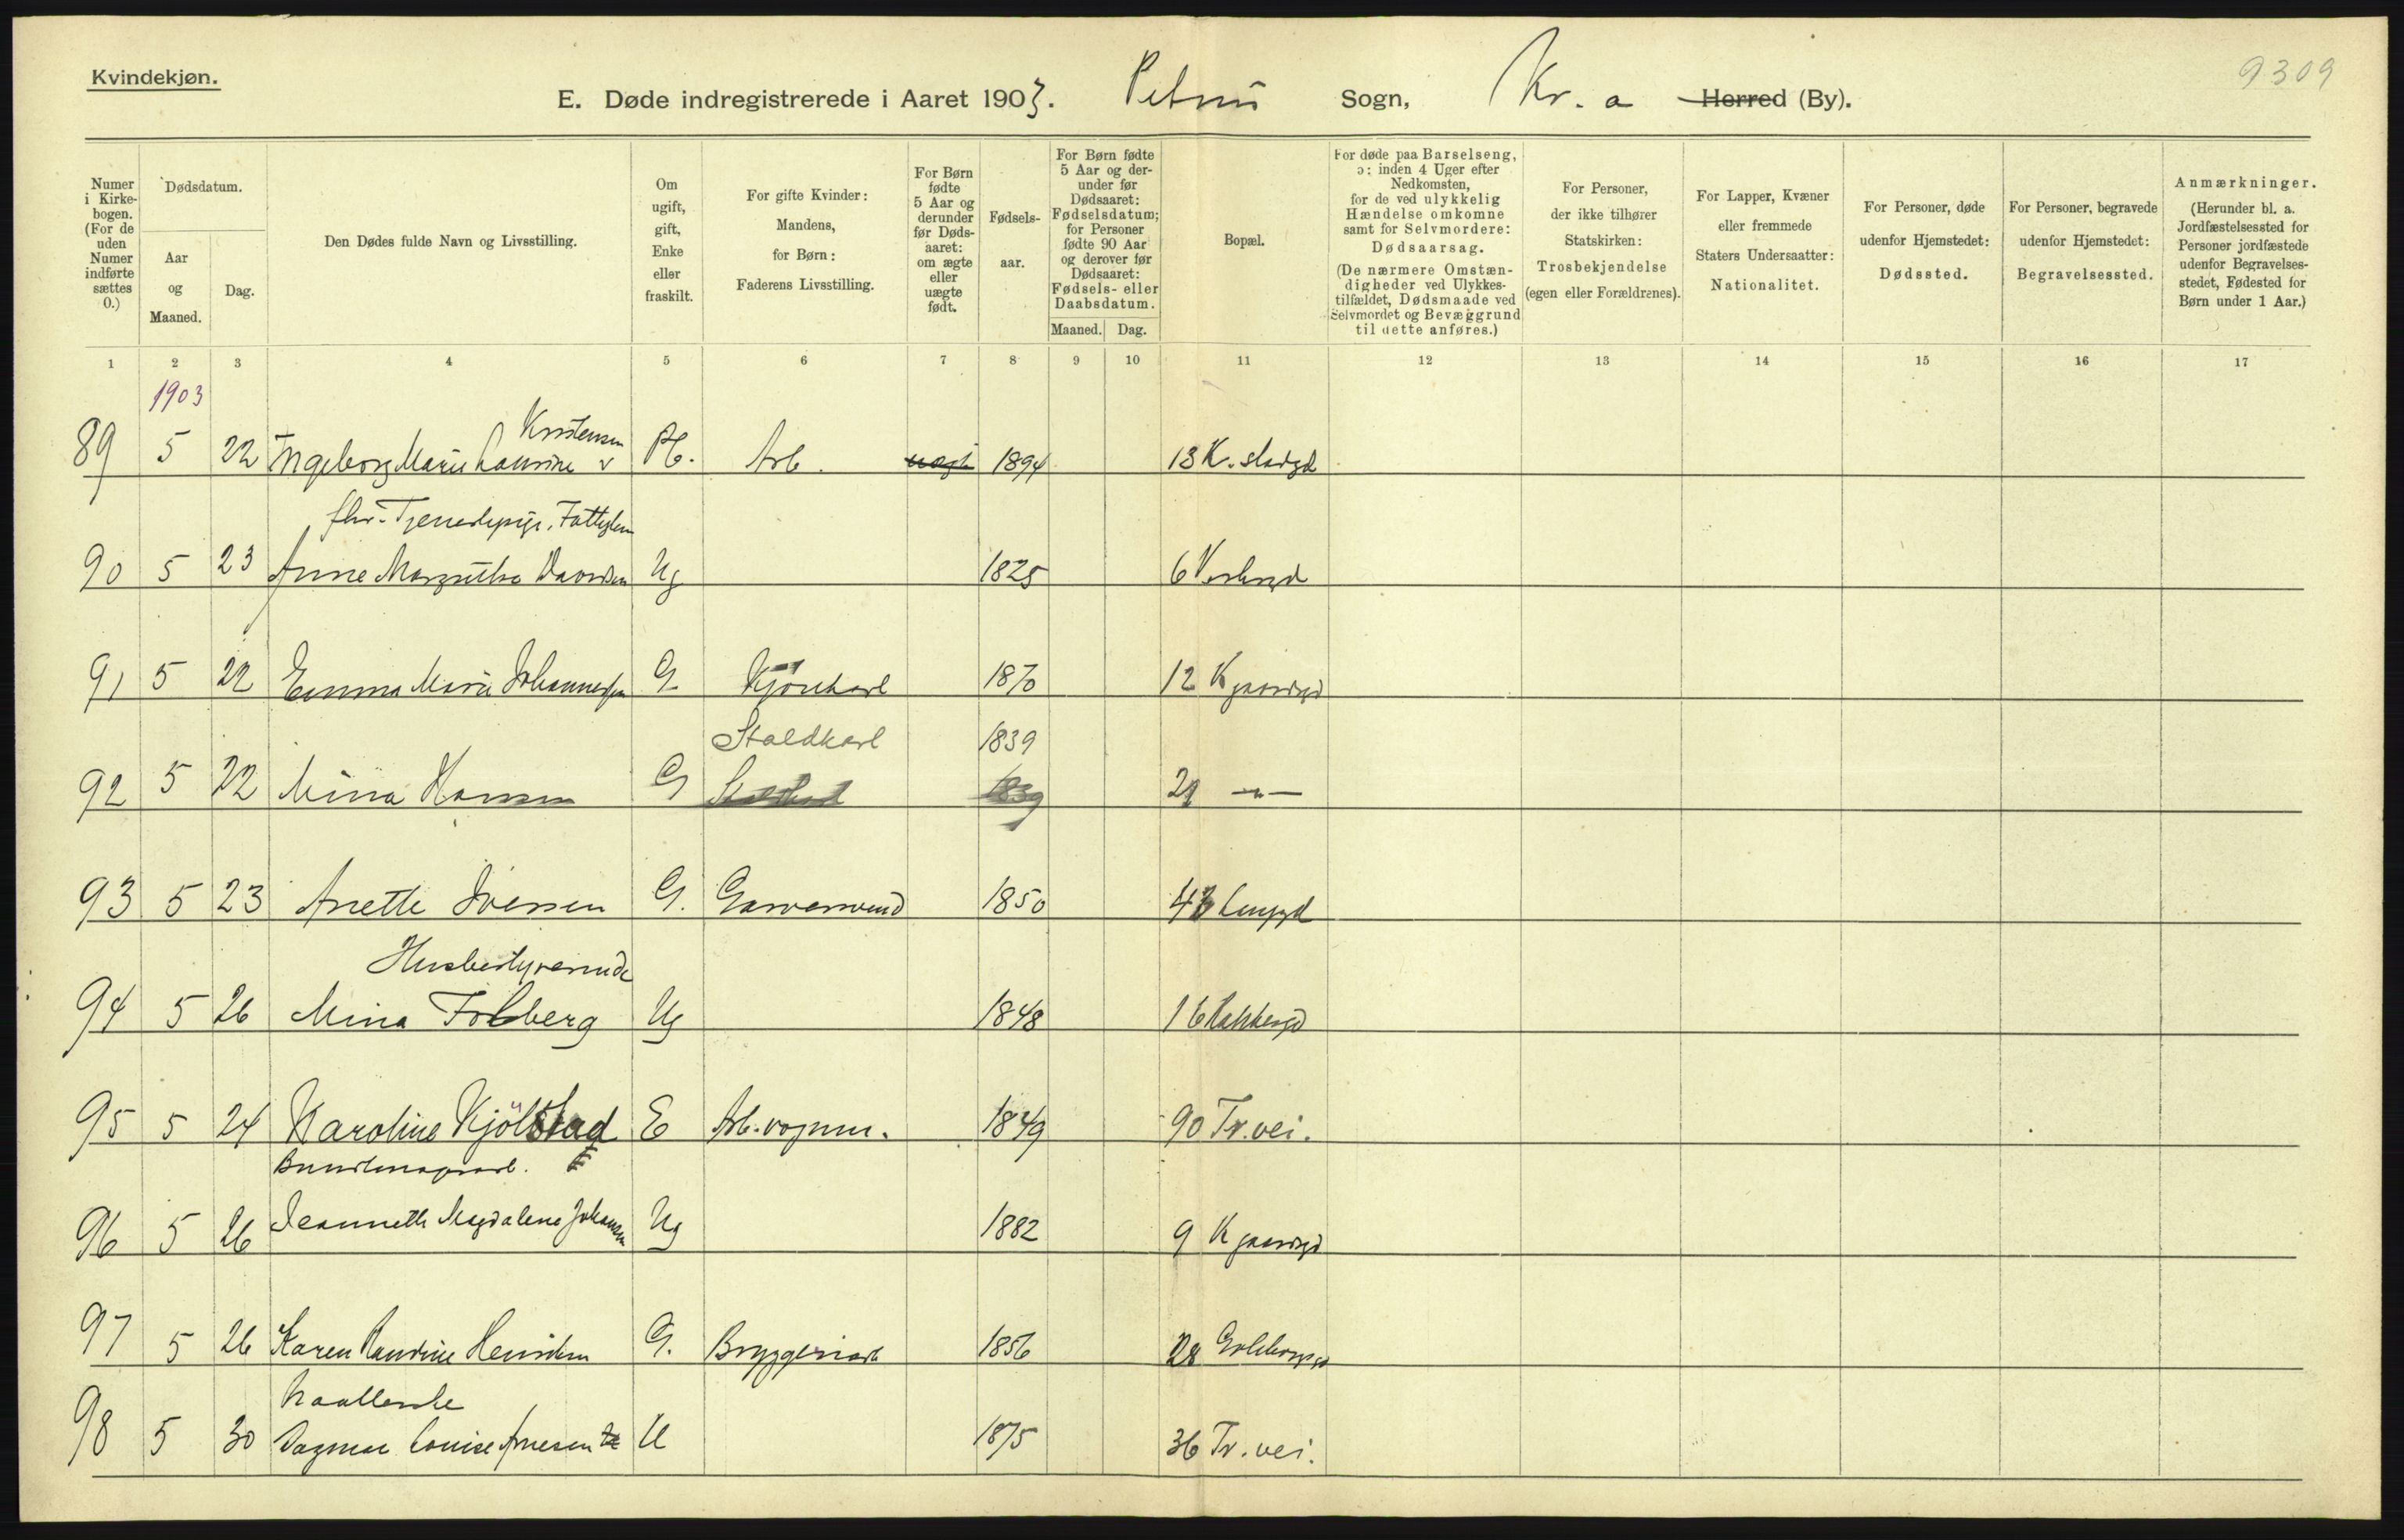 Kvindekjøn.
9309
E. Døde indregistrerede i Aaret 1903. Petrus Sogn, Kr. a Herred (By).
Numer i Kirke-bogen. (For de uden Numer indførte sættes 0.)
Dødsdatum.
Aar og Maaned.
Dag.
Den Dødes fulde Navn og Livsstilling.
Om ugift, gift, Enke eller fraskilt.
For gifte Kvinder: Mandens, for Børn: Faderens Livsstilling.
For Børn fødte 5 Aar og derunder før Døds-aaret: om ægte eller uægte født.
Fødsels-aar.
For Børn fødte 5 Aar og der-under før Dødsaaret: Fødselsdatum; for Personer fødte 90 Aar og derover før Dødsaaret: Fødsels- eller Daabsdatum.
Maaned. Dag.
Bopæl.
For døde paa Barselseng, ɔ: inden 4 Uger efter Nedkomsten, for de ved ulykkelig Hændelse omkomne samt for Selvmordere: Dødsaarsag. (De nærmere Omstæn-digheder ved Ulykkes-tilfældet, Dødsmaade ved Selvmordet og Bevæggrund til dette anføres.)
For Personer, der ikke tilhører Statskirken: Trosbekjendelse (egen eller Forældrenes).
For Lapper, Kvæner eller fremmede Staters Undersaatter: Nationalitet.
For Personer, døde udenfor Hjemstedet: Dødssted.
For Personer, begravede udenfor Hjemstedet: Begravelsessted.
Anmærkninger. (Herunder bl. a. Jordfæstelsessted for Personer jordfæstede udenfor Begravelses-stedet, Fødested for Børn under 1 Aar.)
1 2 3 4 5 6 7 8 9 10 11 12 13 14 15 16 17
1903
Kristensen
89 5 22 Ingeborg Marie Laurine v Arb. 1894 13 K.
Tjenestepige,
90 5 23 Anne Margrethe Ug 1825 6
91 5 22 Emma Marie Johannessen G Kjørekarl 1870 12 K
Staldkarl 1839
92 5 22 Mina Hansen G 1839 21 — " —
93 5 23 Anette Iversen G. Garversvend 1850
Husbestyrerinde
94 5 26 Mina Folberg Ug 1848 16
95 5 24 Karoline Kjölstad E 1849 90 Tr. vei.
96 5 26 Jeannette Magdalene Johansen Ug 1882 9 K
97 5 26 Karen G. Bryggeriarb 1856 28
98 5 30 Dagmar Louise Arnesen U 1875 36 Tr. vei.